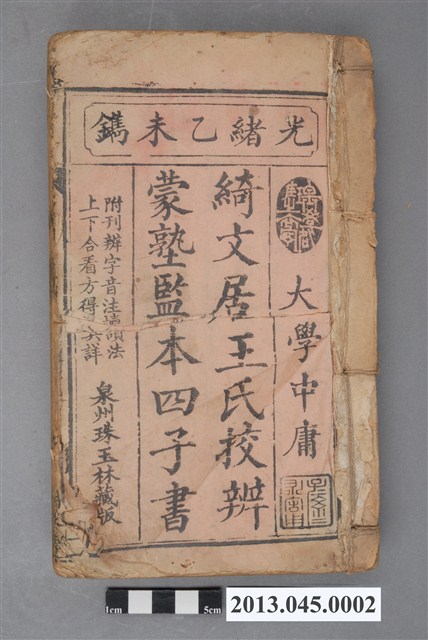 光緒乙未鐫
大學中庸
綺文居王氏挍辨
蒙塾監本四子書
附刊辨字音注
上下合看方得
詳
泉州珠玉林藏版
1cm
5cm
2013.045.0002